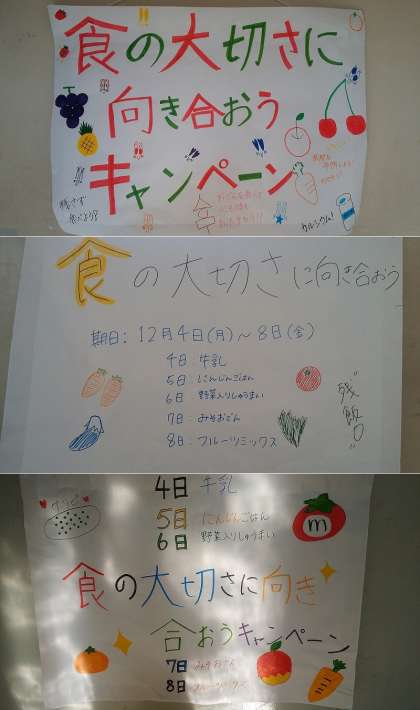 食の大切さに
向き合おう
キャンペーン
残さず
食べよう
カルシウム!
食の大切さに向き合おう
期日：12月4日(月)～8日(金)
4日：牛乳
5日：にんじんごはん
6日：野菜入りしゅうまい
7日：みそおでん
8日：フルーツミックス
"残飯0"
4日 牛乳
5日 にんじんごはん
6日 野菜入りしゅうまい
m
食の大切さに向き
合おうキャンペーン
7日 みそおでん
8日 フルーツミックス